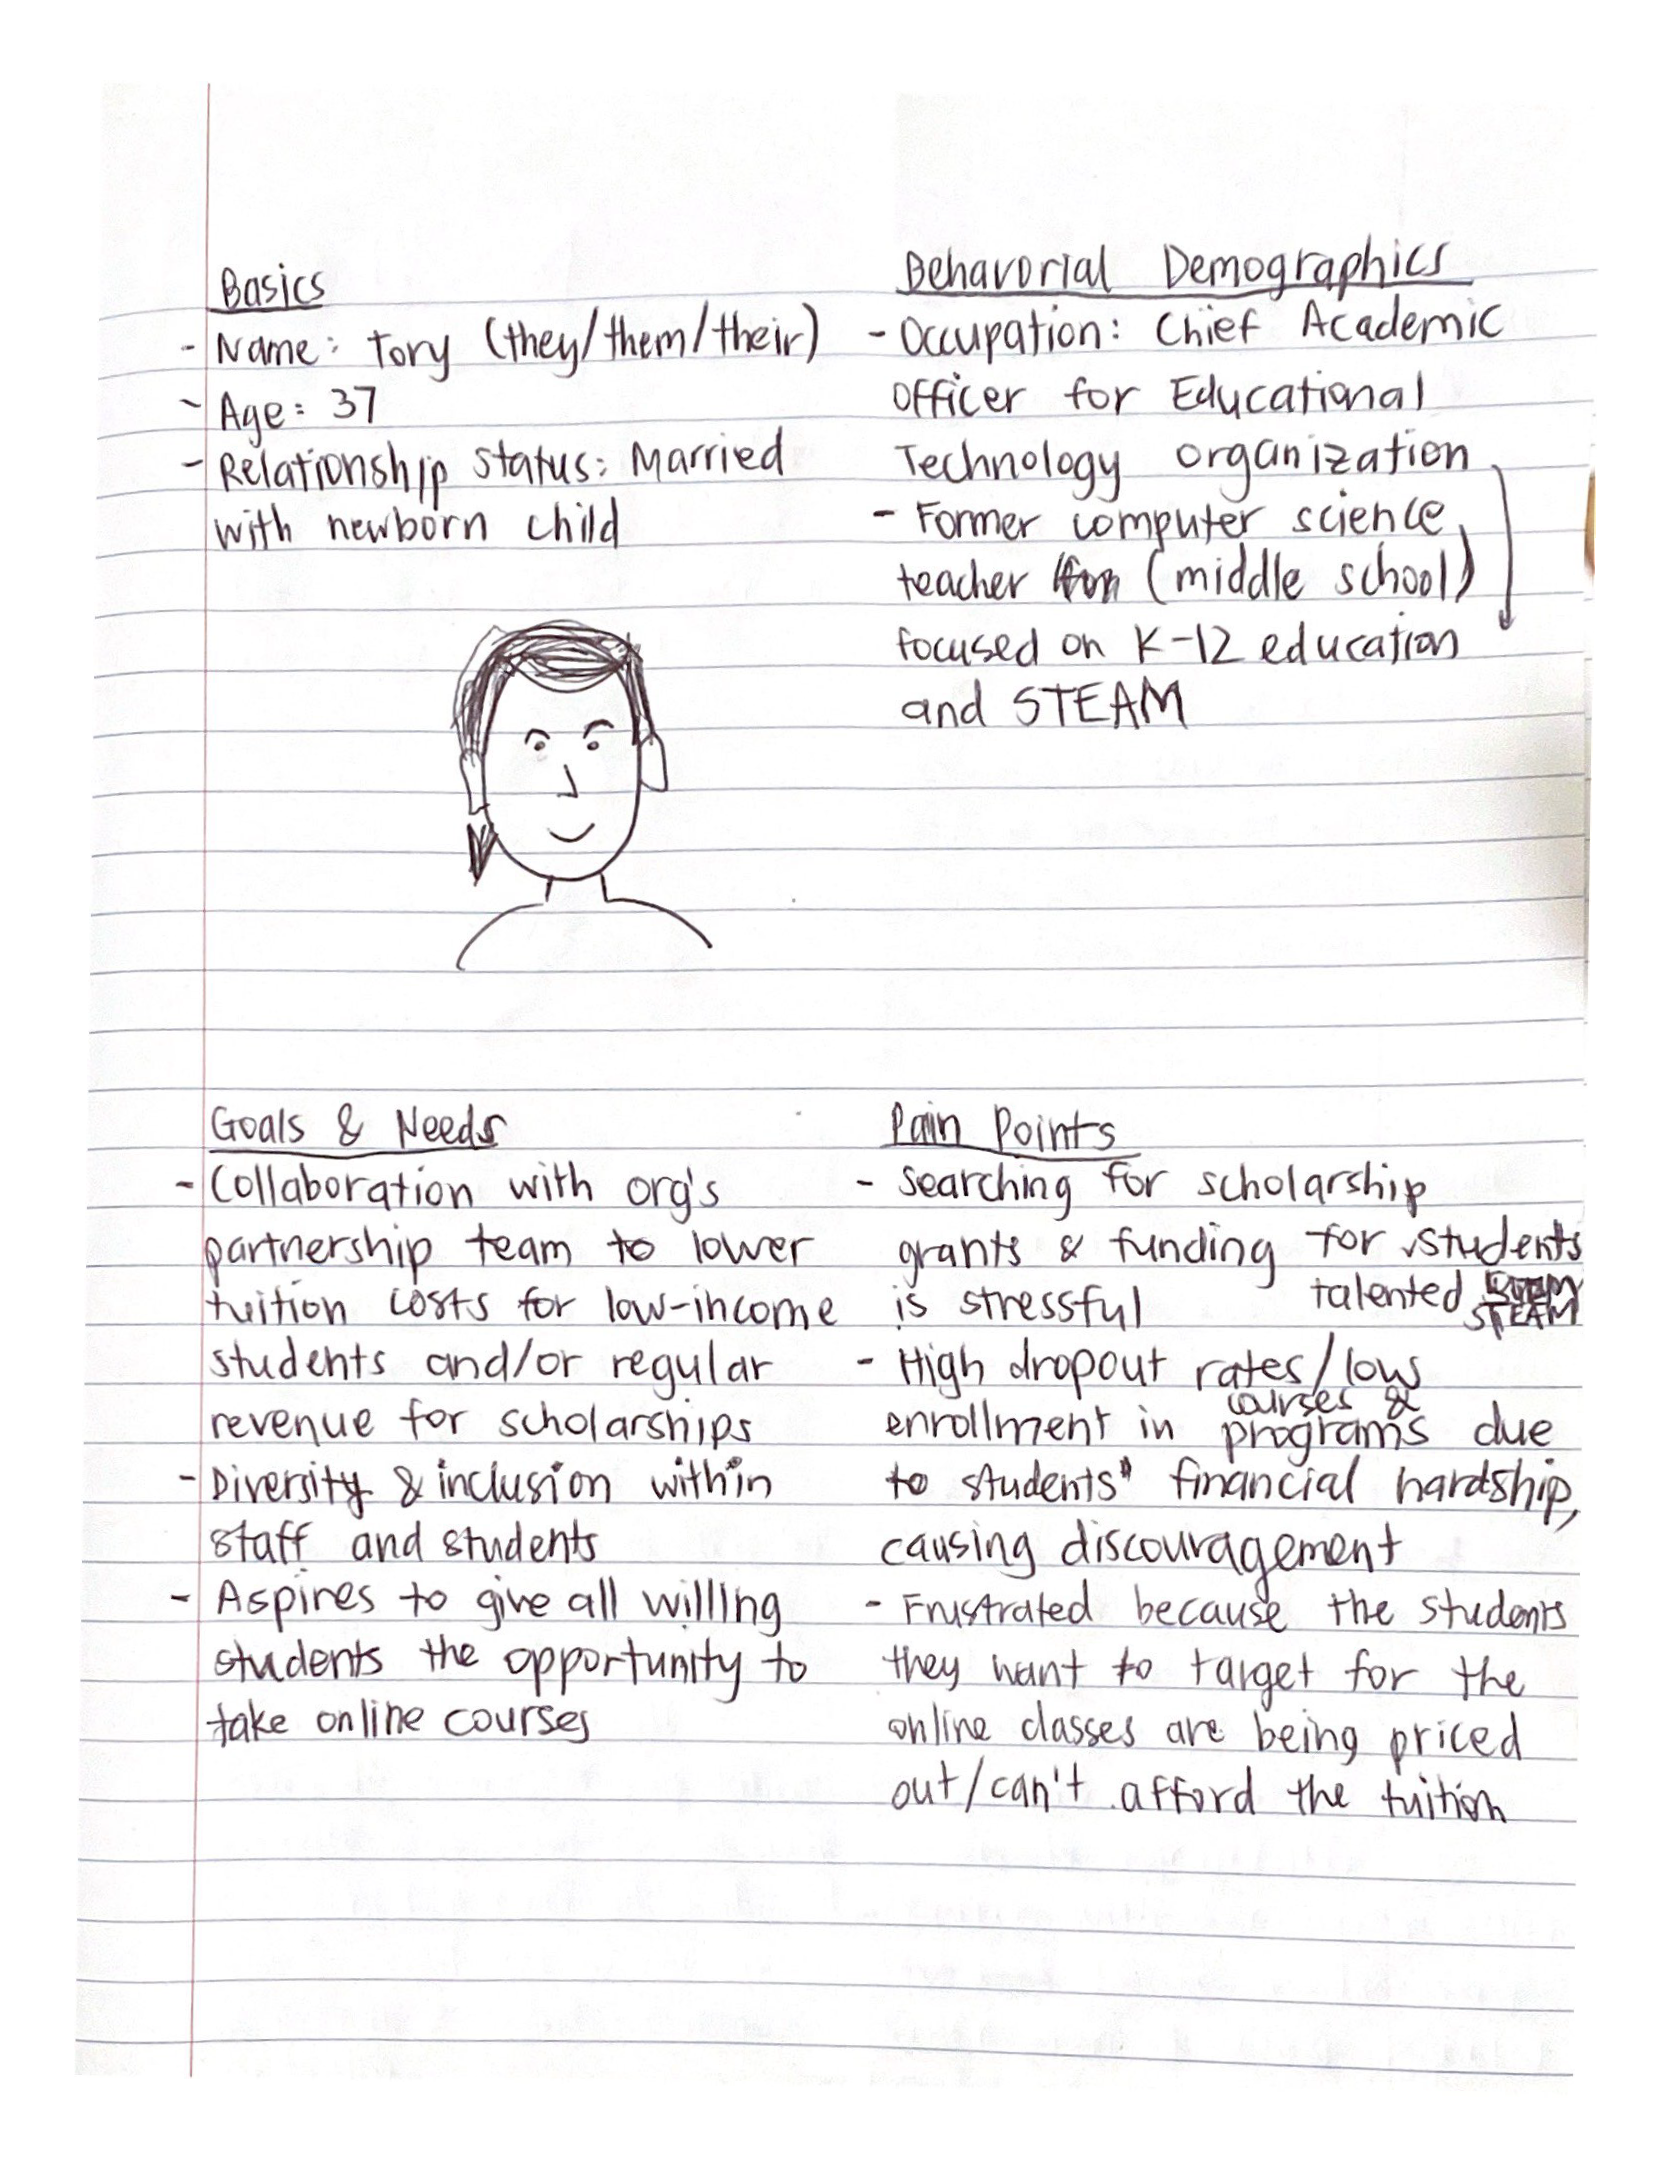 Basics
- Name: Tory (they/them/their)
- Age: 37
- Relationship status: Married
with newborn child
Behavorial Demographics
- Occupation: Chief Academic
Officer for Educational
Technology organization
- Former computer science
teacher (middle school)
focused on K-12 education
and STEAM
Goals & Needs
- Collaboration with org's
partnership team to lower
tuition costs for low-income
students and/or regular
revenue for scholarships
- Diversity & inclusion within
staff and students
- Aspires to give all willing
students the opportunity to
take online courses
Pain Points
- Searching for scholarship
grants & funding for students
is stressful talented
STEAM
- High dropout rates/low
courses &
enrollment in programs due
to students' financial hardship,
causing discouragement
- Frustrated because the students
they want to target for the
online classes are being priced
out/can't afford the tuition